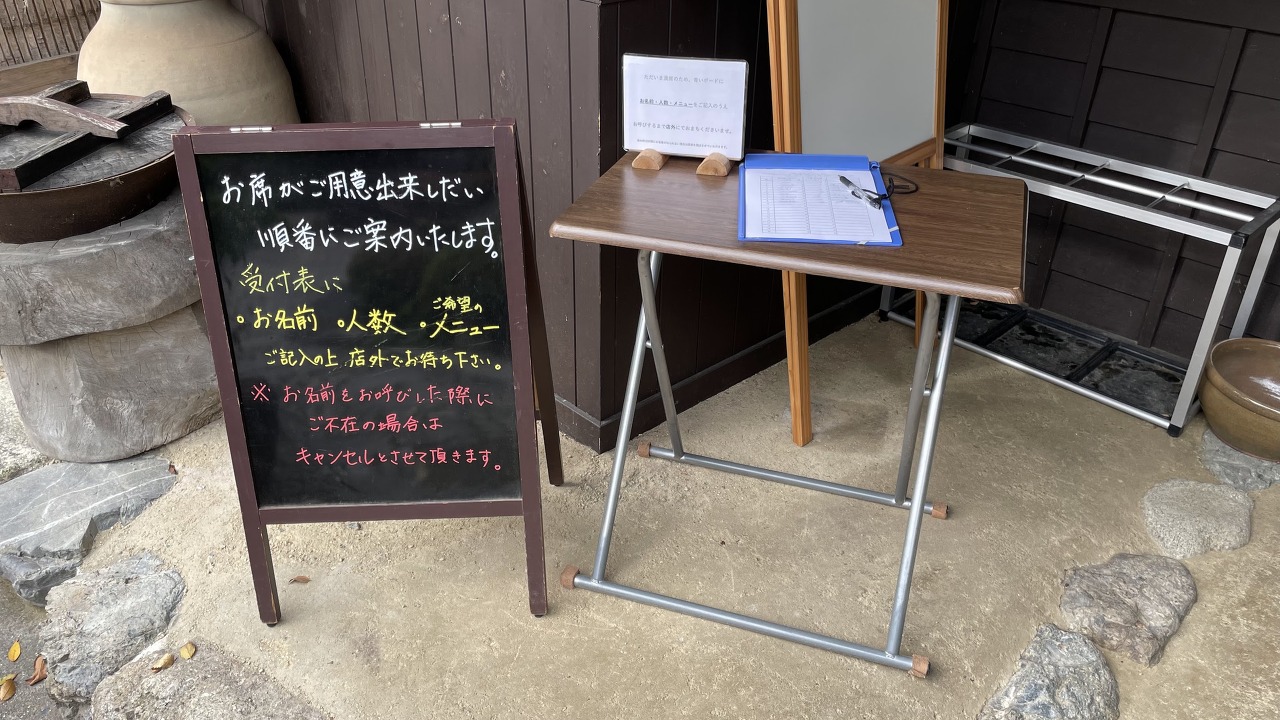 お席がご用意出来しだい
順番にご案内いたします。
受付表に
・お名前 ・人数 ・ご希望のメニュー
ご記入の上、店外でお待ち下さい。
※ お名前をお呼びした際に
ご不在の場合は
キャンセルとさせて頂きます。
お名前・人数・メニューをご記入のうえ
お呼びするまで店外にておまちくださいませ。